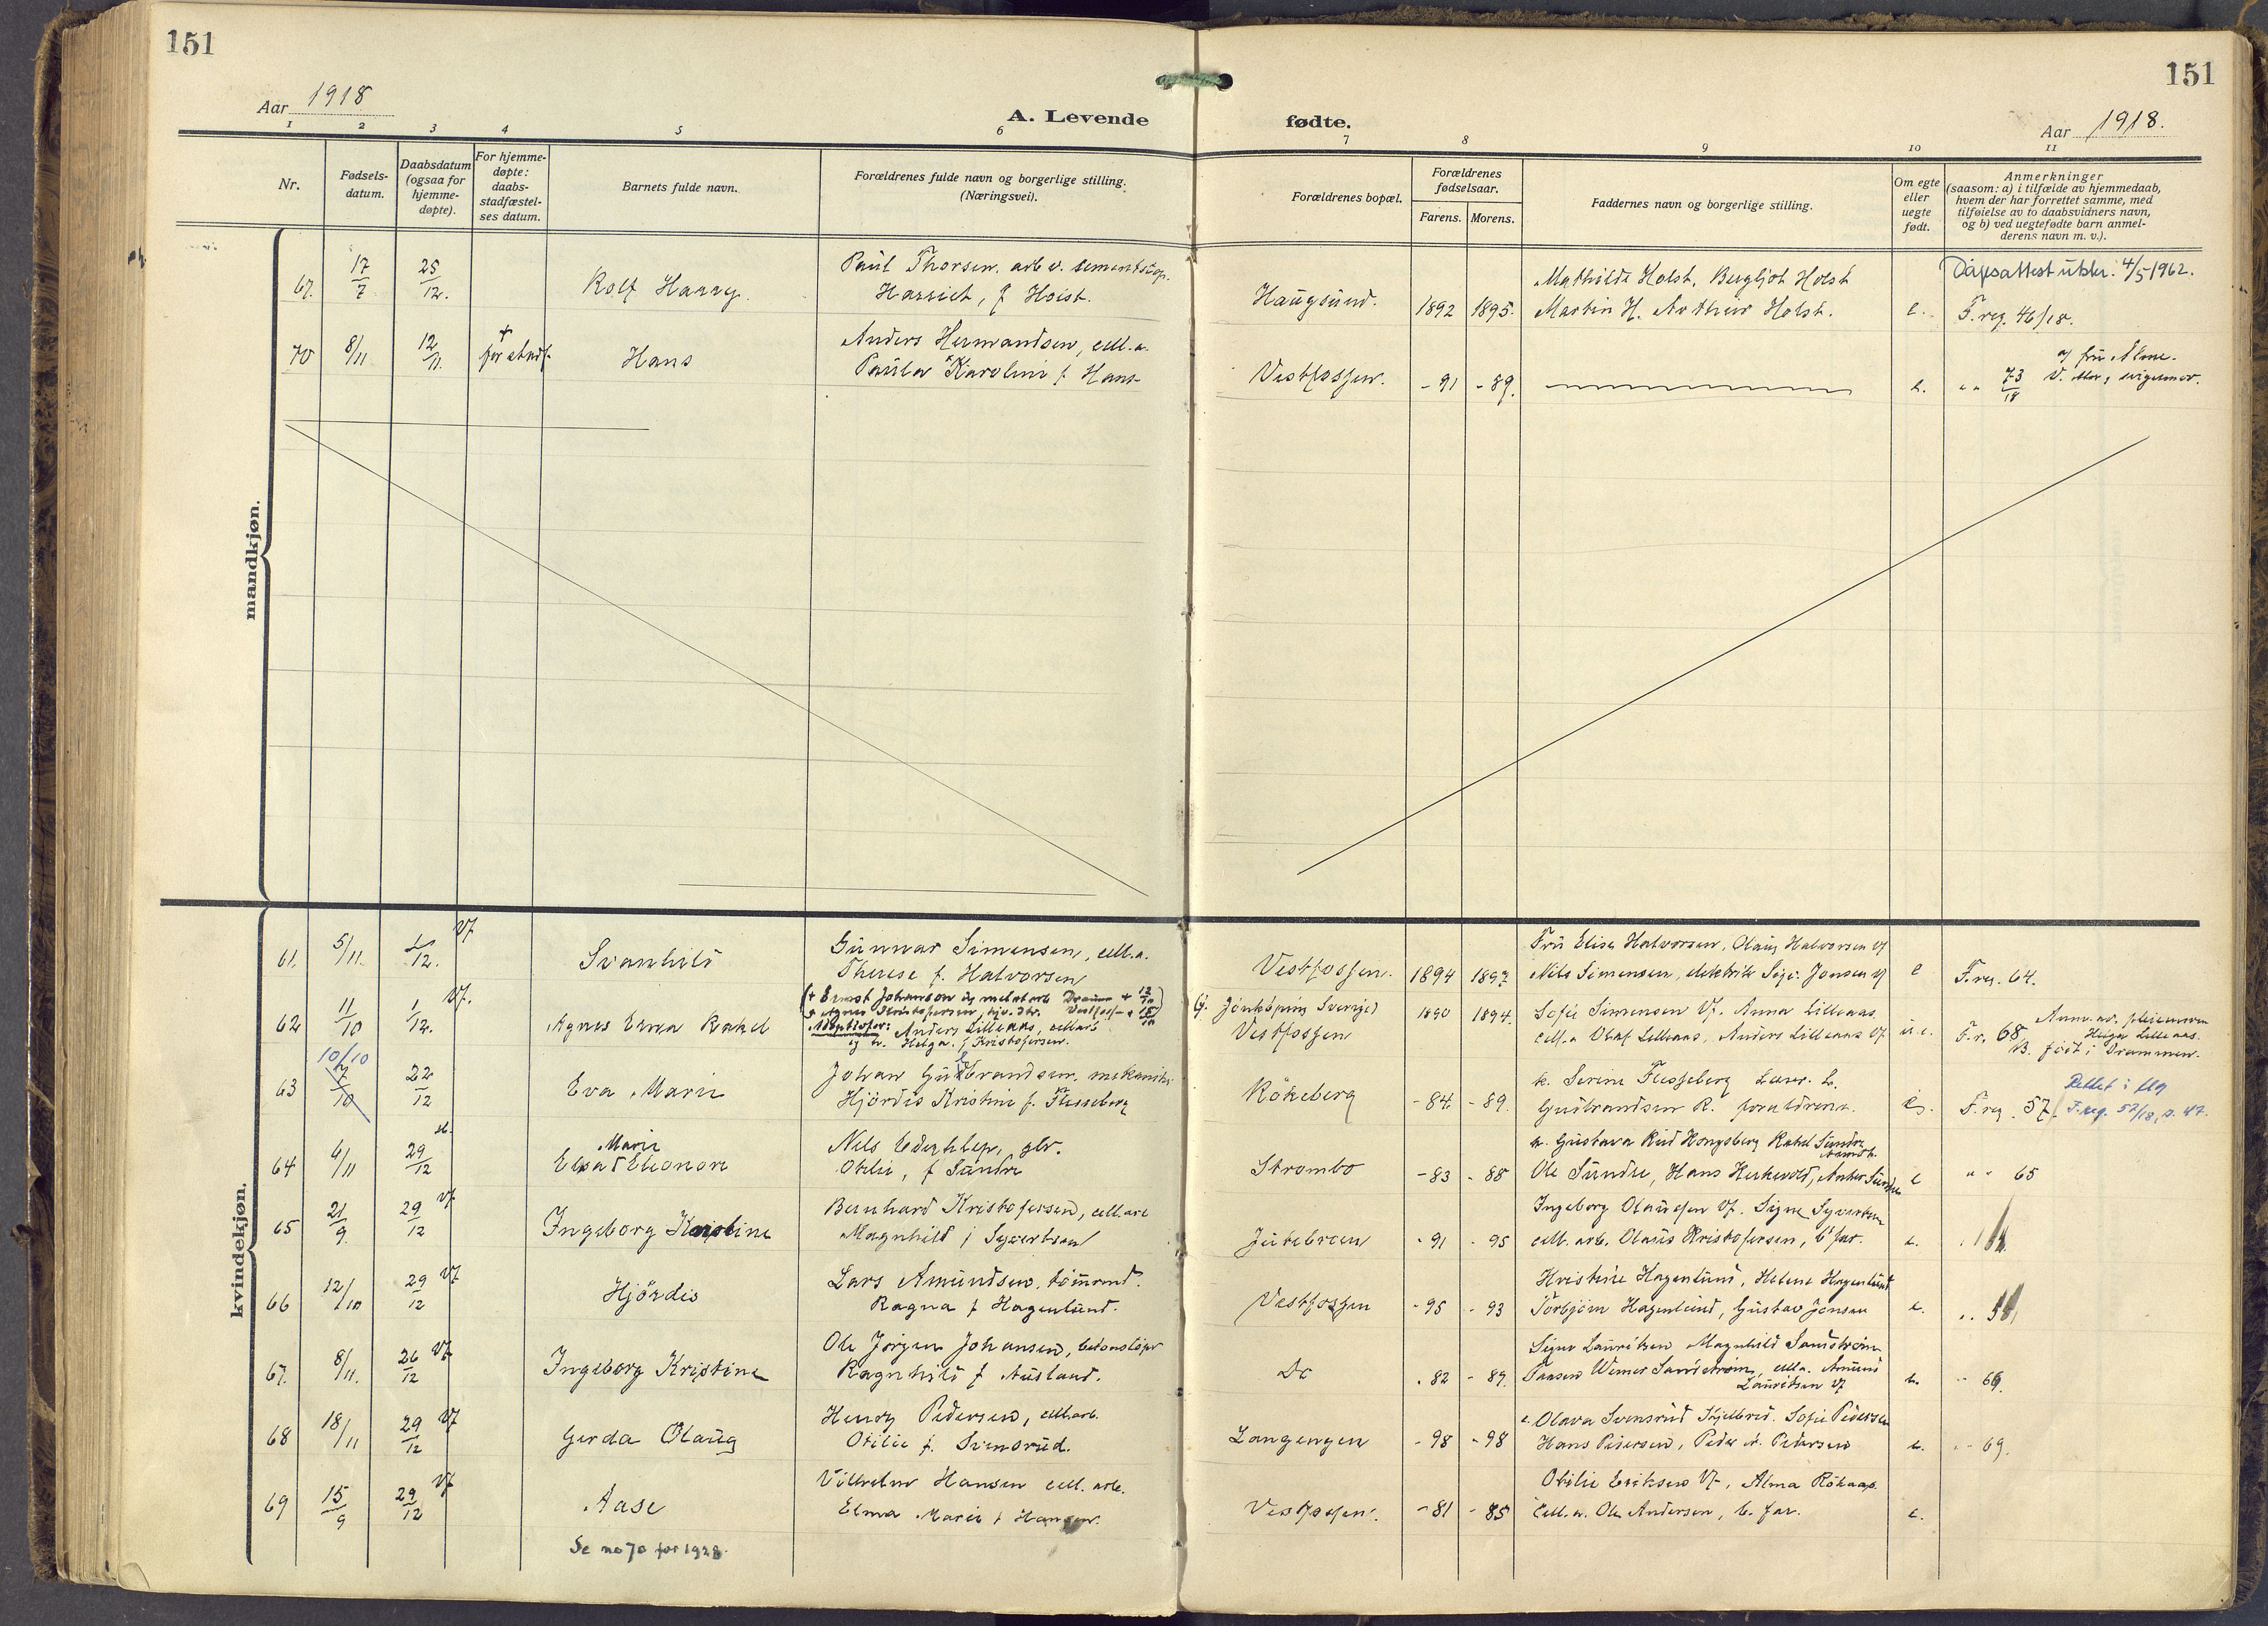 151
151
Aar 1918
A. Levende
fødte.
Aar 1918.
1 2 3 4 5 6 7 8 9 10 11
Nr.
Fødsels-
datum.
Daabsdatum
(ogsaa for
hjemme-
døpte).
For hjemme-
døpte:
daabs-
stadfæstel-
ses datum.
Barnets fulde navn.
Forældrenes fulde navn og borgerlige stilling.
(Næringsvei).
Forældrenes bopæl.
Forældrenes
fødselsaar.
Farens. Morens.
Faddernes navn og borgerlige stilling.
Om egte
eller
uegte
født.
Anmerkninger
(saasom: a) i tilfælde av hjemmedaab,
hvem der har forrettet samme, med
tilføielse av to daabsvidners navn,
og b) ved uegtefødte barn anmel-
derens navn m. v.).
mandkjøn.
Paul Thorsen. arb. v.
Mathilde Holst, Bergljot Holst
Dåpsattest utstr. 4/5 1962.
67. 17/7 25/12. Rolf Harry. Harriet, f Holst. Haugsund. 1892 1895. Martin H. Arthur Holst. e. F. reg. 46/18.
Anders Hermandsen, cell. a.
70 8/11 12/11. + før stadf. Hans Paula Karoline f Hans- Vestfossen. -91 -89. e. " " 73/18
kvindekjøn.
Gunnar Simensen, cell.a.
Fru Elise Halvorsen, Olaug Halvorsen Vf
61. 5/11. 1/12. Vf Svanhild Therese f. Halvorsen Vestfossen. 1894 1897 Nils Simensen, Jensen Vf e F. reg. 64.
(+ Ernst Johanson
Agnes Kristofersen,
(g. Jönköping Sverige)
62 11/10 1/12. Vf. Agnes Erna Rakel Adoptivfor: Anders Lilleaas, cellarb Vestfossen 1890 1894. Sofie Simensen Vf. Anna Lilleaas
og h. Helga. f Kristofersen.
cell. a Olaf Lilleaas, Anders Lilleaas Vf. u.e. F. r. 68
Helga Lilleaas.
født i Drammen.
10/10
Johan Gudbrandsen. mekaniker
63 7/10 22/12 Eva Marie Hjördis Kristine f. Flesseberg Rökeberg -84 -89. Gudbrandsen R. forældrene. e. F. reg. 57.
Rettet i
F.reg. 57/18, s. 47.
64 6/11 29/12 Elsa Eleonore
Marie
Nils
Otilie, f Sundre Strombo -83 -88 Ole Sundre, Hans e " " 65
Bernhard Kristofersen, cell.arb
Ingeborg Olaussen Vf. Signe Syvertsen
65 21/9 29/12 Vf Ingeborg Karoline Magnhild f Syvertsen Jutebroen -91 -95 cell. arb. Olaus Kristofersen, b's far. e.
Lars Amundsen, tömmrmd.
Kristine Hagenlund, Helene Hagenlund
66 12/10 29/12 Vf Hjördis Ragna f Hagenlund. Vestfossen -95 -93 Torbjörn Hagenlund, Gustav Jensen e.
Ole Jörgen Johansen,
Signe Lauritsen Magnhild Sandström
67. 8/11. 26/12 Vf Ingeborg Kristine Ragnhild f Ausland. Do -82 -89. Werner Sandström, cell.a. Amund
Lauritsen Vf e. " 66.
Henry Pedersen, cell.arb.
Olava Svensrud Sofie Pedersen
68 18/11 29/12 Vf Gerda Olaug Otilie f. Svensrud. Langengen -98 -98 Hans Pedersen, Peder A. Pedersen e. " 69.
Vilhelm Hansen cell. arb.
Otilie Eriksen Vf., Alma Rökaas.
69 15/9 29/12 Vf. Aase Elma Marie f Hansen. Vestfossen. -81 -85 Cell. a. Ole Andersen, b. far. e.
Se no 70 for 1928.